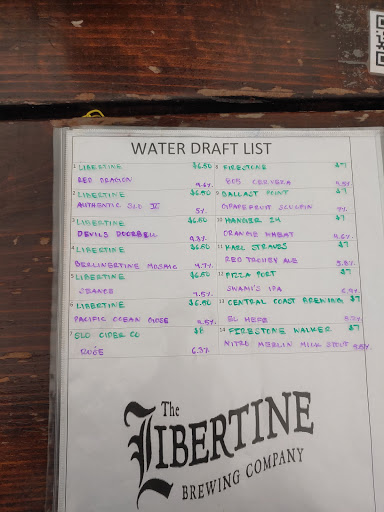 WATER DRAFT LIST
1 LIBERTINE $6.50
RED DRAGON 9.6%
2 LIBERTINE $6.50
AUTHENTIC SLO IV 5%
3 LIBERTINE $6.50
DEVILS DOORBELL 9.3%
4 LIBERTINE $6.50
BERLINERTINE MOSAIC 4.7%
5 LIBERTINE $6.50
SEANCE 7.5%
6 LIBERTINE $6.50
PACIFIC OCEAN GOSE 5.5%
7 SLO CIDER CO $8
ROSÉ 6.3%
8 FIRESTONE $7
805 CERVEZA
9 BALLAST POINT $7
GRAPEFRUIT SCULPIN 7%
10 HANGER 24 $7
ORANGE WHEAT
11 KARL STRAUSS $7
RED TROLLEY ALE 5.8%
12 PIZZA PORT $7
SWAMI'S IPA 6.8%
13 CENTRAL COAST BREWING $7
EL HEFE
14 FIRESTONE WALKER $7
NITRO MERLIN MILK STOUT 5.5%
The
LIBERTINE
BREWING COMPANY